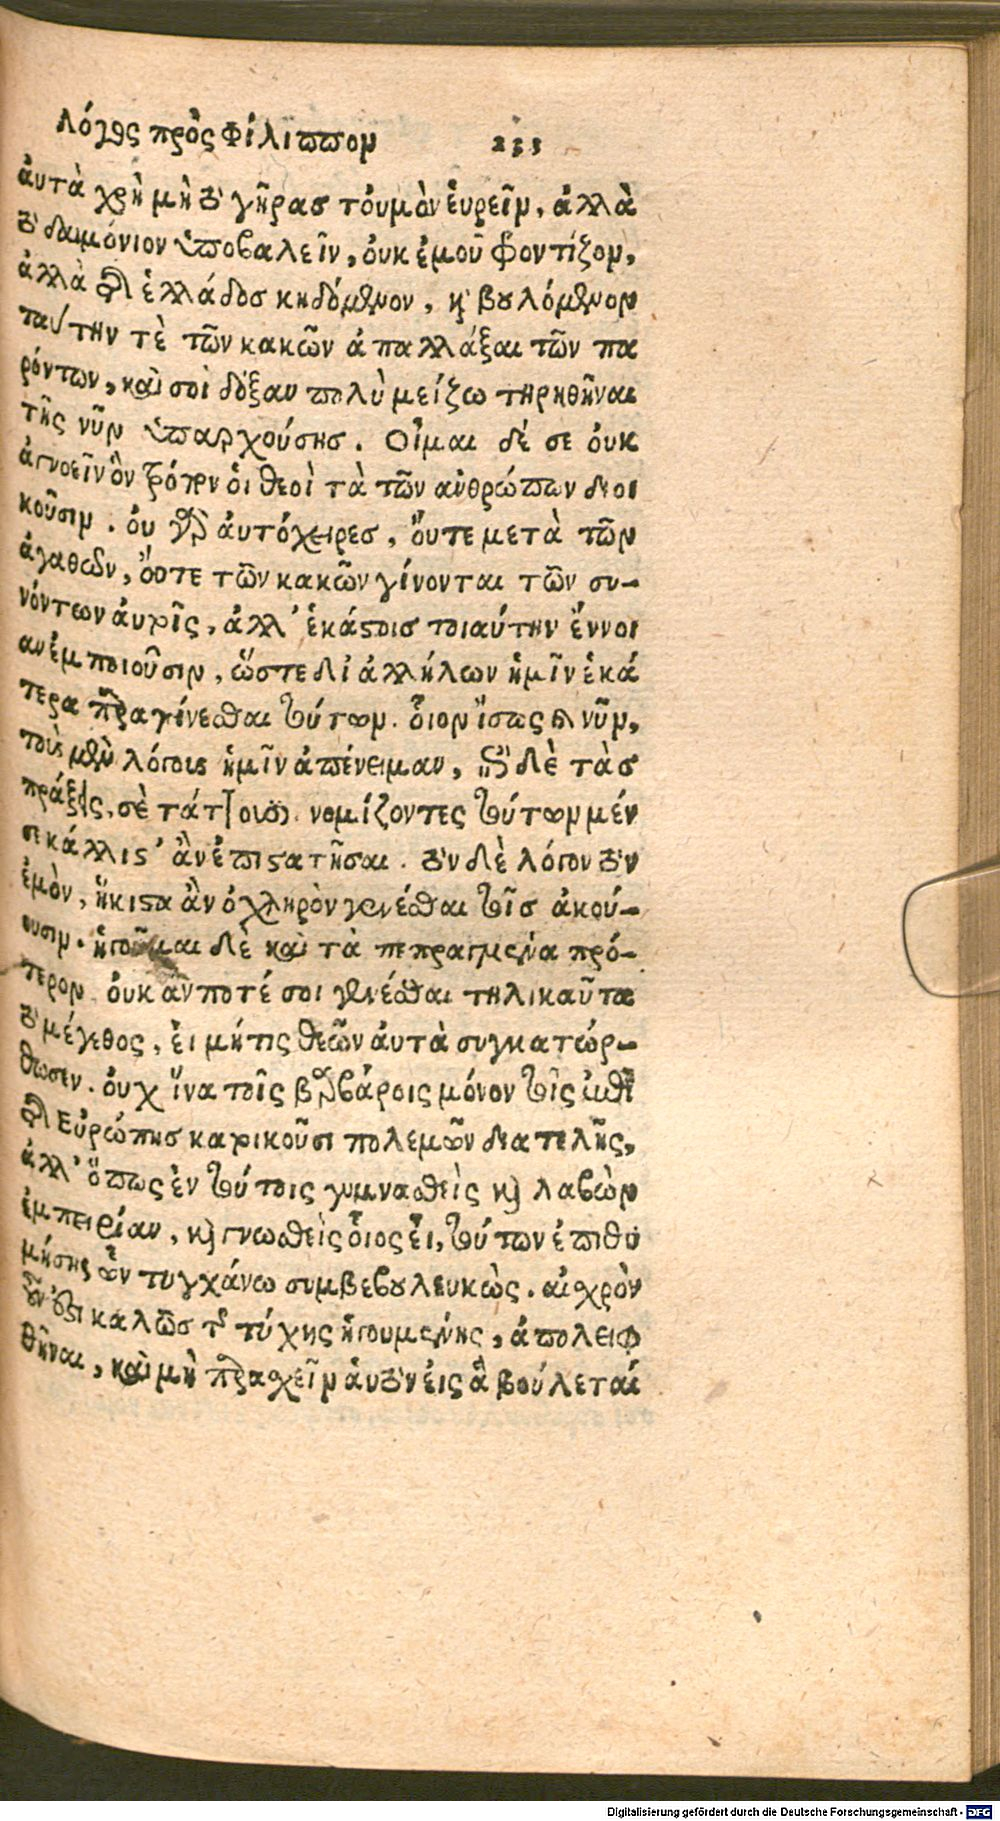 Λόγος πρὸς Φίλιππον 235
ἀυτὰ χρὴ μὴ τὸ γῆρας τοὐμὸν ἑυρεῖν, ἀλλὰ
τὸ δαιμόνιον ὑποβαλεῖν, ὀυκ ἐμοῦ φροντίζον,
ἀλλὰ τῆς ἑλλάδος κηδόμενον, καὶ βουλόμενον
ταύτην τὲ τῶν κακῶν ἀπαλλάξαι τῶν πα
ρόντων, καὶ σοὶ δόξαν πολὺ μείζω τηρηθῆναι
τῆς νῦν ὑπαρχούσης. Οἶμαι δέ σε ὀυκ
ἀγνοεῖν ὃν τρόπον ὁι θεοὶ τὰ τῶν ἀνθρώπων διοι
κοῦσιν. ὀυ γὰρ ἀυτόχειρες, ὄυτε μετὰ τῶν
ἀγαθῶν, ὄυτε τῶν κακῶν γίνονται τῶν συ-
νόντων ἀυτοῖς, ἀλλ' ἑκάστοις τοιαύτην ἔννοι
αν ἐμποιοῦσιν, ὥστε δι' ἀλλήλων ἡμῖν ἑκά
τερα πραγίνεσθαι τούτων. ὅιον ἴσως καὶ νῦν,
τοὺς μὲν λόγους ἡμῖν ἀπένειμαν, ἐπὶ δὲ τὰς
πράξεις, σὲ τάττουσι. νομίζοντες τούτων μέν
σε κάλλιστ' ἂν ἐπιστατῆσαι. τὸν δὲ λόγον τὸν
ἐμὸν, ἥκιστα ἂν ὀχληρὸν γενέσθαι τοῖς ἀκού-
ουσιν. ἡγοῦμαι δὲ καὶ τὰ πεπραγμένα πρό-
τερον ὀυκ ἄν ποτέ σοι γενέσθαι τηλικαῦτα
τὸ μέγεθος, ἐι μή τις θεῶν ἀυτὰ συγκατώρ-
θωσεν. ὀυχ ἵνα τοῖς βαρβάροις μόνον τοῖς ἐπὶ
τῆς Εὐρώπης κατοικοῦσι πολεμῶν διατελῇς,
ἀλλ' ὅπως ἐν τούτοις γυμνασθεὶς καὶ λαβὼν
ἐμπειρίαν, καὶ γνωσθεὶς ὅιος ἐι, τούτων ἐπιθυ
μήσῃς ὧν τυγχάνω συμβεβουλευκὼς. αἰσχρὸν
οὖν ἐστι καλῶς τῆς τύχης ἡγουμένης, ἀπολειφ
θῆναι, καὶ μὴ πρασχεῖν ἁυτὸν ἐις ἃ βούλεταί
Digitalisierung gefördert durch die Deutsche Forschungsgemeinschaft - DFG